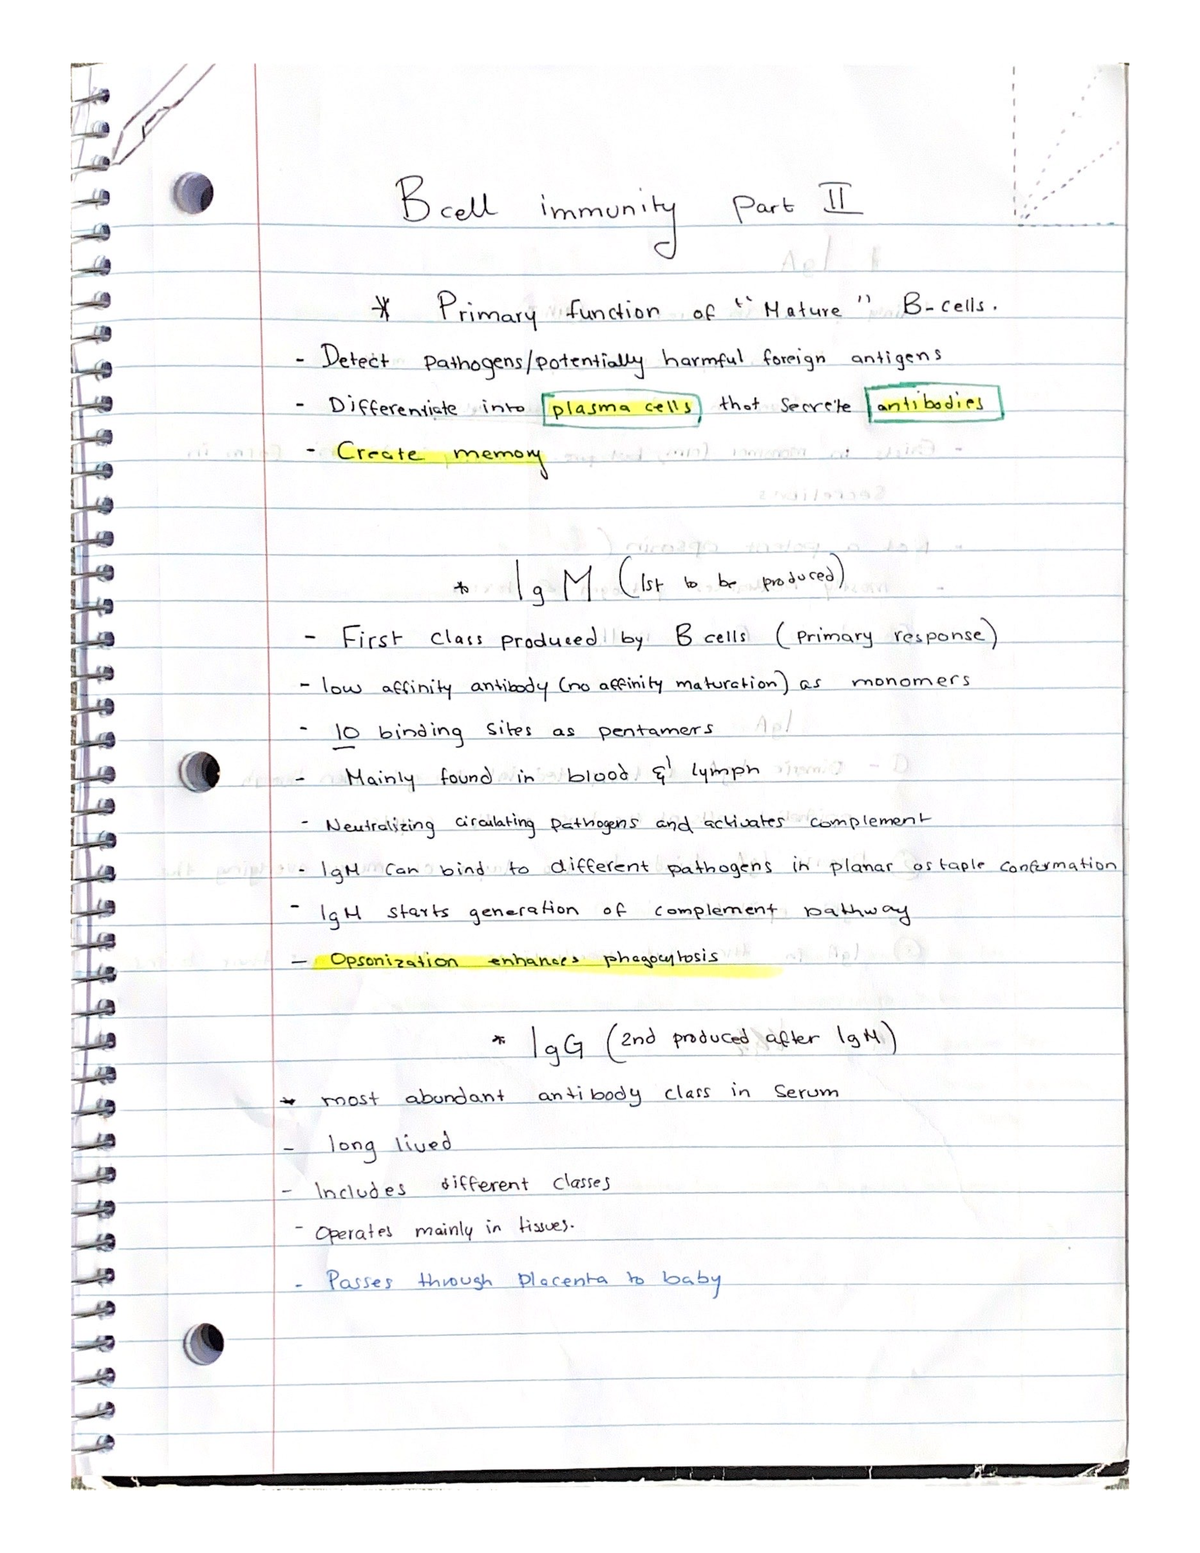 B cell immunity Part II
* Primary function of "Mature" B-cells.
- Detect pathogens/potentially harmful foreign antigens
- Differentiate into plasma cells that secrete antibodies
- Create memory
* IgM (1st to be produced)
- First class produced by B cells (primary response)
- low affinity antibody (no affinity maturation) as monomers
- 10 binding sites as pentamers
- Mainly found in blood & lymph
- Neutralizing circulating pathogens and activates complement
- IgM can bind to different pathogens in planar or staple confirmation
- IgM starts generation of complement pathway
- Opsonization enhances phagocytosis
* IgG (2nd produced after IgM)
* most abundant antibody class in serum
- long lived
- Includes different classes
- Operates mainly in tissues.
- Passes through placenta to baby